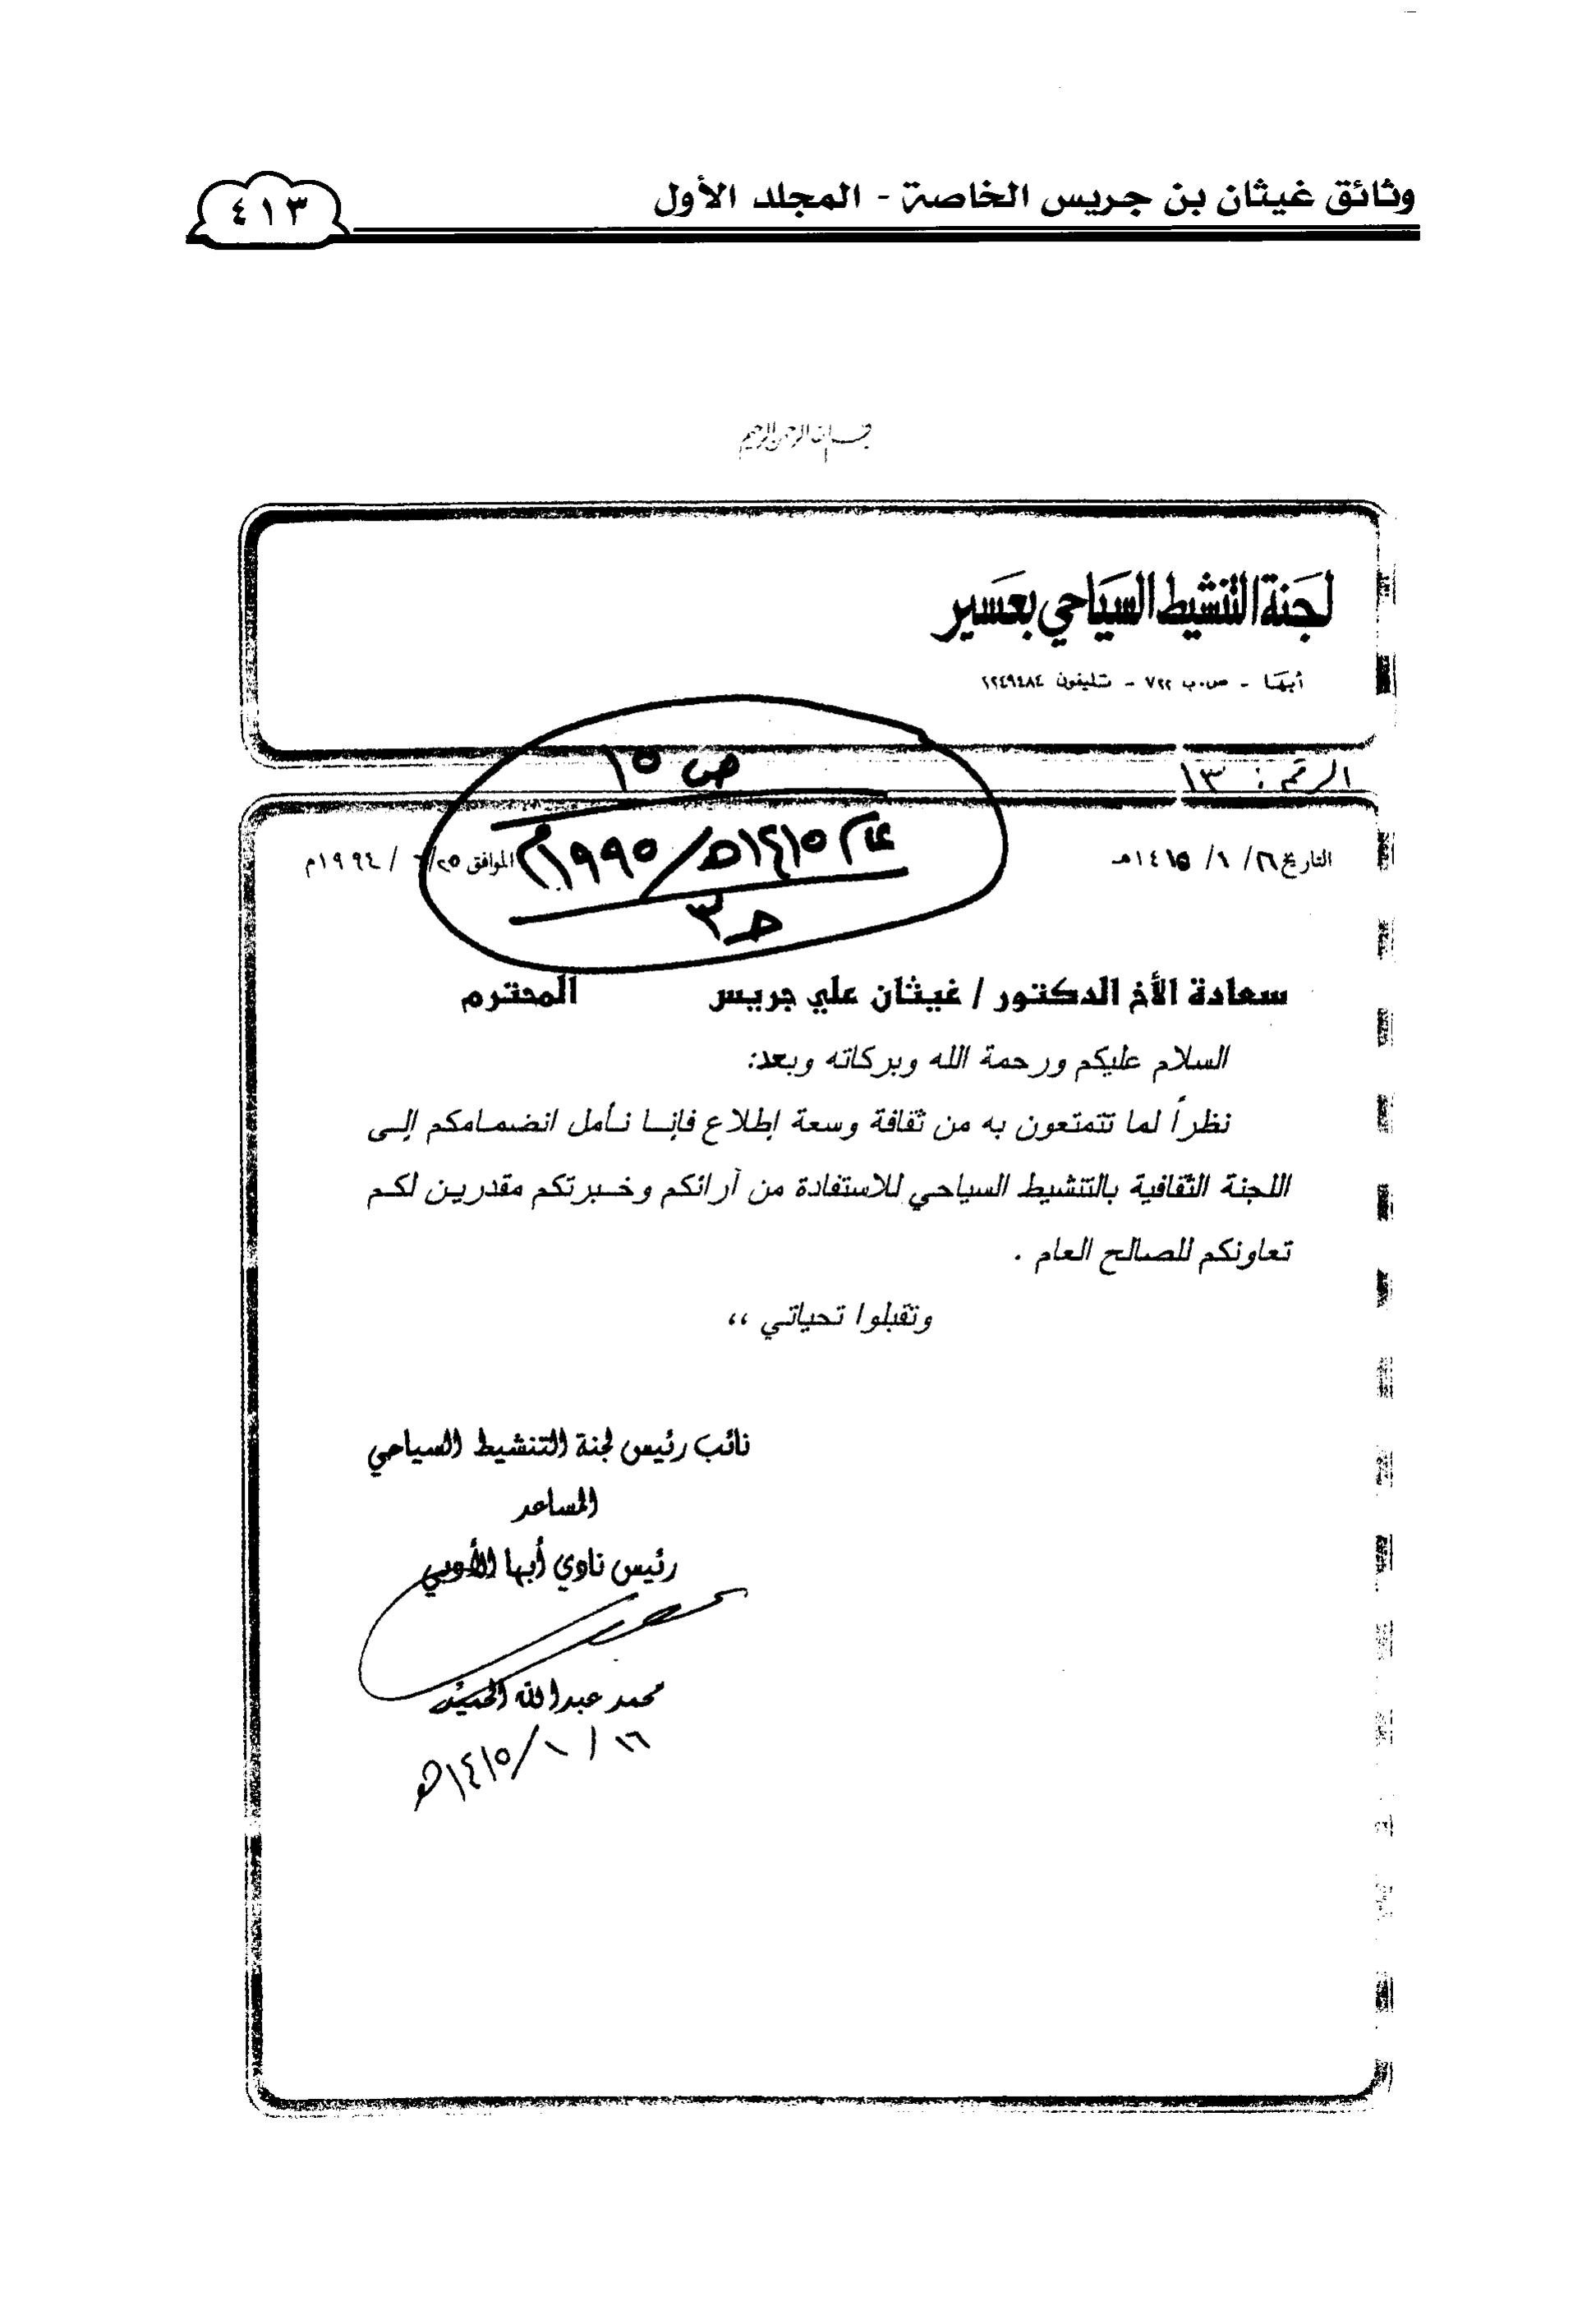 وثائق غيثان بن جريس الخاصة - المجلد الأول
٤١٣
بسم الله الرحمن الرحيم
لجنة التنشيط السياحي بعسير
أبها - ص.ب ٧٢٢ - تليفون ٢٢٤٩٤٨٤
الرقم : ١٣
ص ١٥
عام ١٤١٥هـ/١٩٩٥م
حـ٣
التاريخ ١٦/ ١/ ١٤١٥هـ
الموافق ٢٥/٦ / ١٩٩٤م
سعادة الأخ الدكتور / غيثان علي جريس المحترم
السلام عليكم ورحمة الله وبركاته وبعد:
نظراً لما تتمتعون به من ثقافة وسعة إطلاع فإنا نأمل انضمامكم إلى
اللجنة الثقافية بالتنشيط السياحي للاستفادة من آرائكم وخبرتكم مقدرين لكم
تعاونكم للصالح العام .
وتقبلوا تحياتي ،،
نائب رئيس لجنة التنشيط السياحي
المساعد
رئيس نادي أبها الأدبي
محمد عبدالله الحميد
١٦ / ١ /١٤١٥هـ